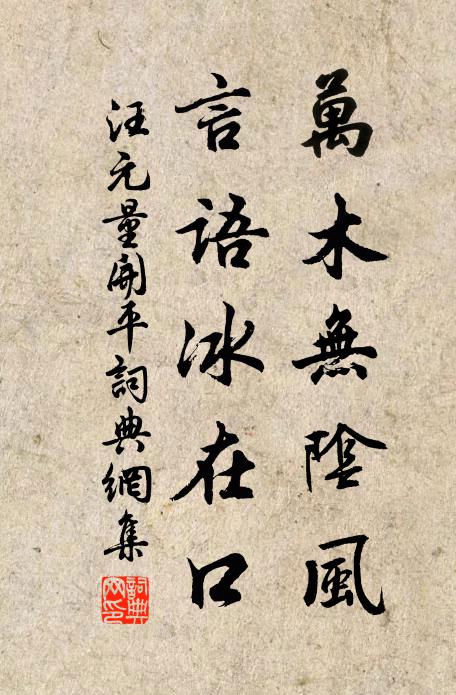 萬木無陰風
言語冰在口
汪元量開平詞典網集
詞典
网印